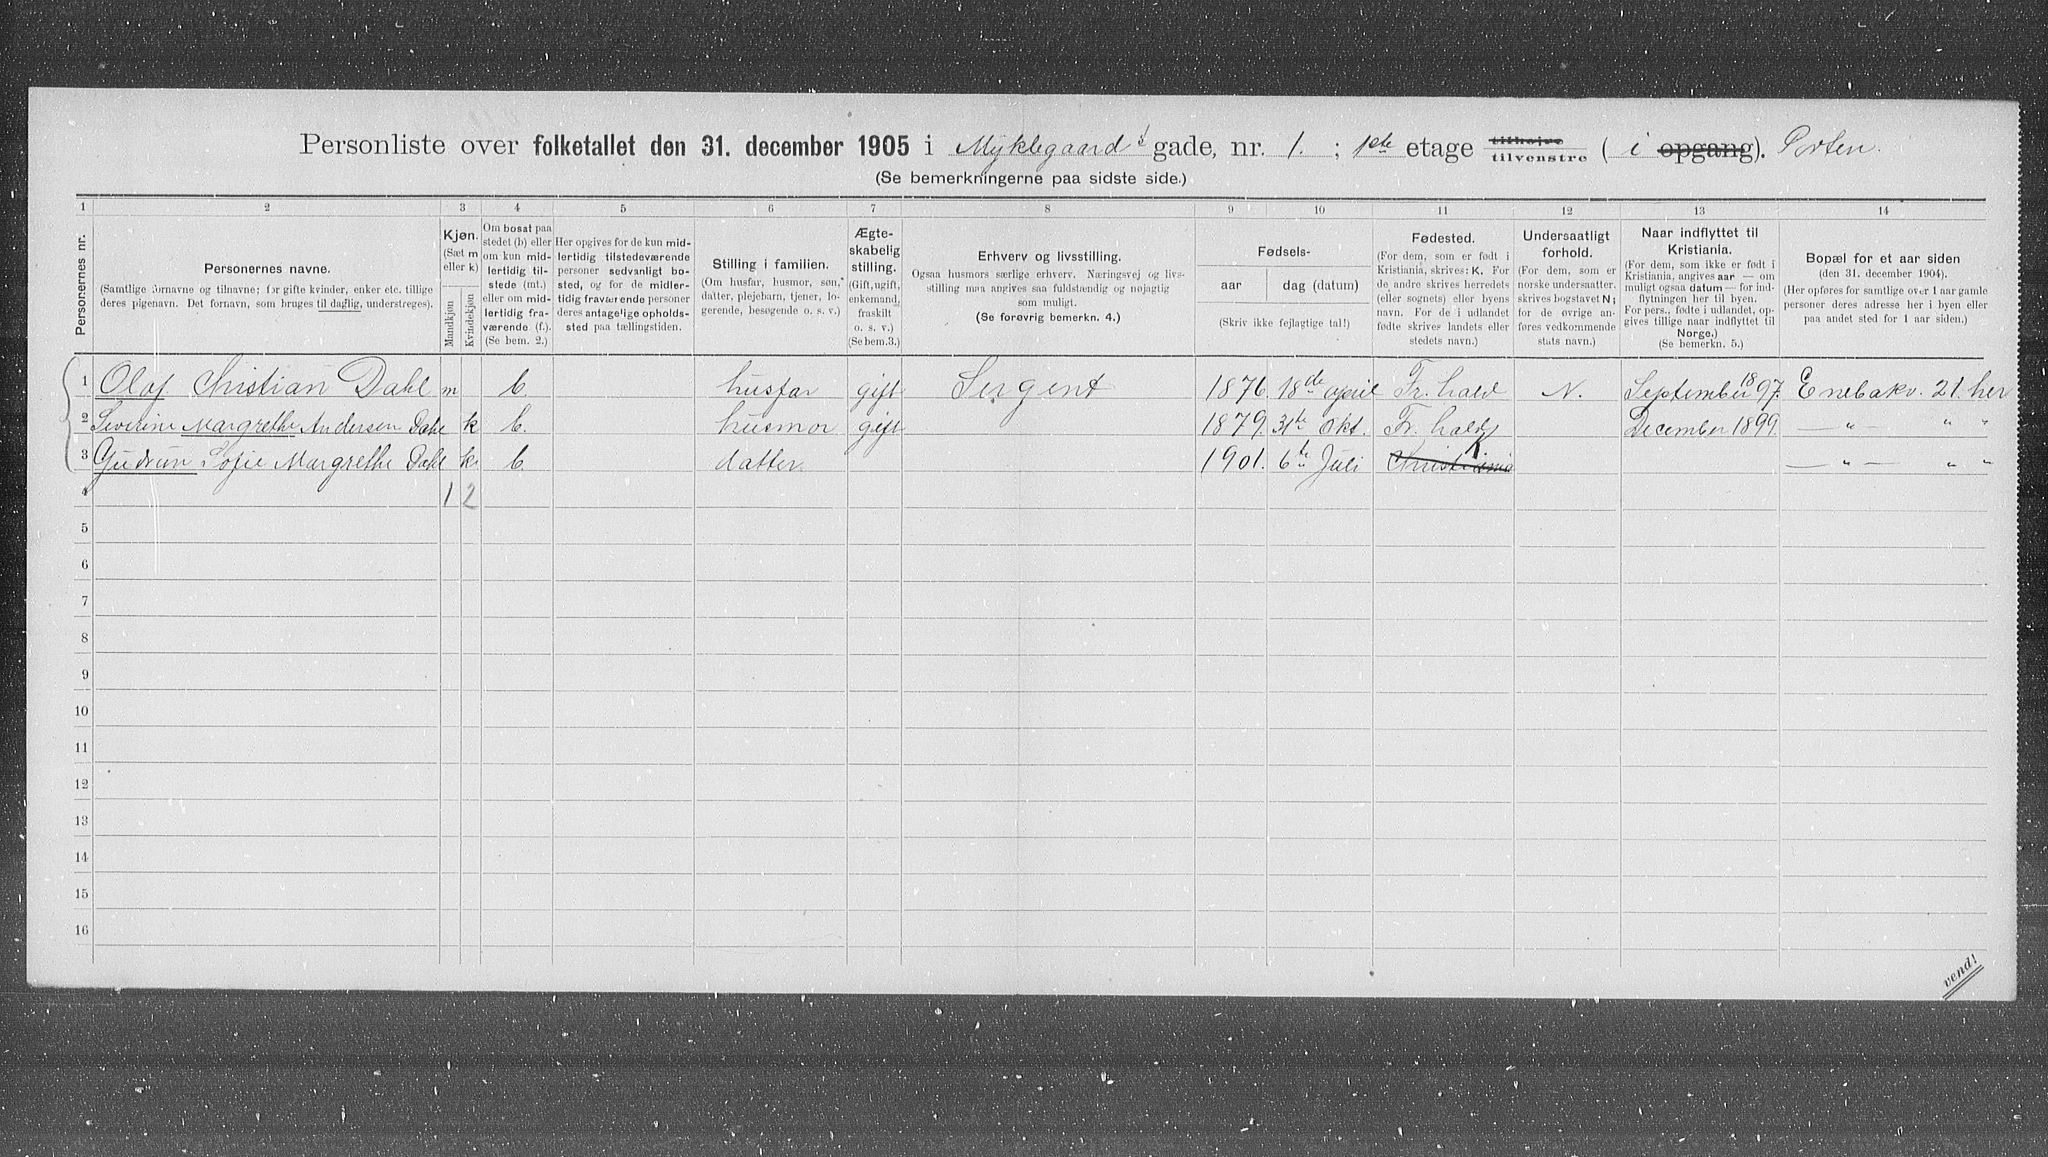 Personliste over folketallet den 31. december 1905 i Myklegaard s gade, nr. 1. ; 1ste etage tilhøjre tilvenstre ( i opgang). Porten.
(Se bemerkningerne paa sidste side.)
1 2 3 4 5 6 7 8 9 10 11 12 13 14
Personernes nr.
Personernes navne.
(Samtlige fornavne og tilnavne; for gifte kvinder, enker etc. tillige
deres pigenavn. Det fornavn, som bruges til daglig, understreges).
Kjøn.
(Sæt m
eller k)
Mandkjøn
Kvindekjøn
Om bosat paa
stedet (b) eller
om kun mid-
lertidig til-
stede (mt.)
eller om mid-
lertidig fra-
værende (f.).
(Se bem. 2.)
Her opgives for de kun mid-
lertidig tilstedeværende
personer sedvanligt bo-
sted, og for de midler-
tidig fraværende personer
deres antagelige opholds-
sted paa tællingstiden.
Stilling i familien.
(Om husfar, husmor, søn,
datter, plejebarn, tjener, lo-
gerende, besøgende o. s. v.)
Ægte-
skabelig
stilling.
(Gift, ugift,
enkemand,
fraskilt
o. s. v.)
(Se bem. 3.)
Erhverv og livsstilling.
Ogsaa husmors særlige erhverv. Næringsvej og livs-
stilling maa angives saa fuldstændig og nøjagtig
som muligt.
(Se forøvrig bemerkn. 4.)
Fødsels-
aar dag (datum)
(Skriv ikke fejlagtige tal!)
Fødested.
(For dem, som er født i
Kristiania, skrives: K. For
de andre skrives herredets
(eller sognets) eller byens
navn. For de i udlandet
fødte skrives landets eller
stedets navn.)
Undersaatligt
forhold.
(For dem, som er
norske undersaatter,
skrives bogstavet N;
for de øvrige an-
føres vedkommende
stats navn.)
Naar indflyttet til
Kristiania.
(For dem, som ikke er født i
Kristiania, angives aar — om
muligt ogsaa datum — for ind-
flytningen her til byen.
For pers., fødte i udlandet, op-
gives tillige naar indflyttet til
Norge.)
(Se bemerkn. 5.)
Bopæl for et aar siden
(den 31. december 1904).
(Her opføres for samtlige over 1 aar gamle
personer deres adresse her i byen eller
paa andet sted for 1 aar siden.)
1 Olaf Christian Dahl m b. husfar gift Sergent 1876. 18de april Fr. hald N. September 1897. Enebakv. 21. her
2 Severine Margrethe Andersen Dahl k b. husmor gift 1879. 31te Okt. Fr. hald December 1899. — " — " "
3 Gudrun Sofie Margrethe Dahl k b. datter. 1901. 6te Juli Christiania K — " — " "
4 1 2
5
6
7
8
9
10
11
12
13
14
15
16
vend!